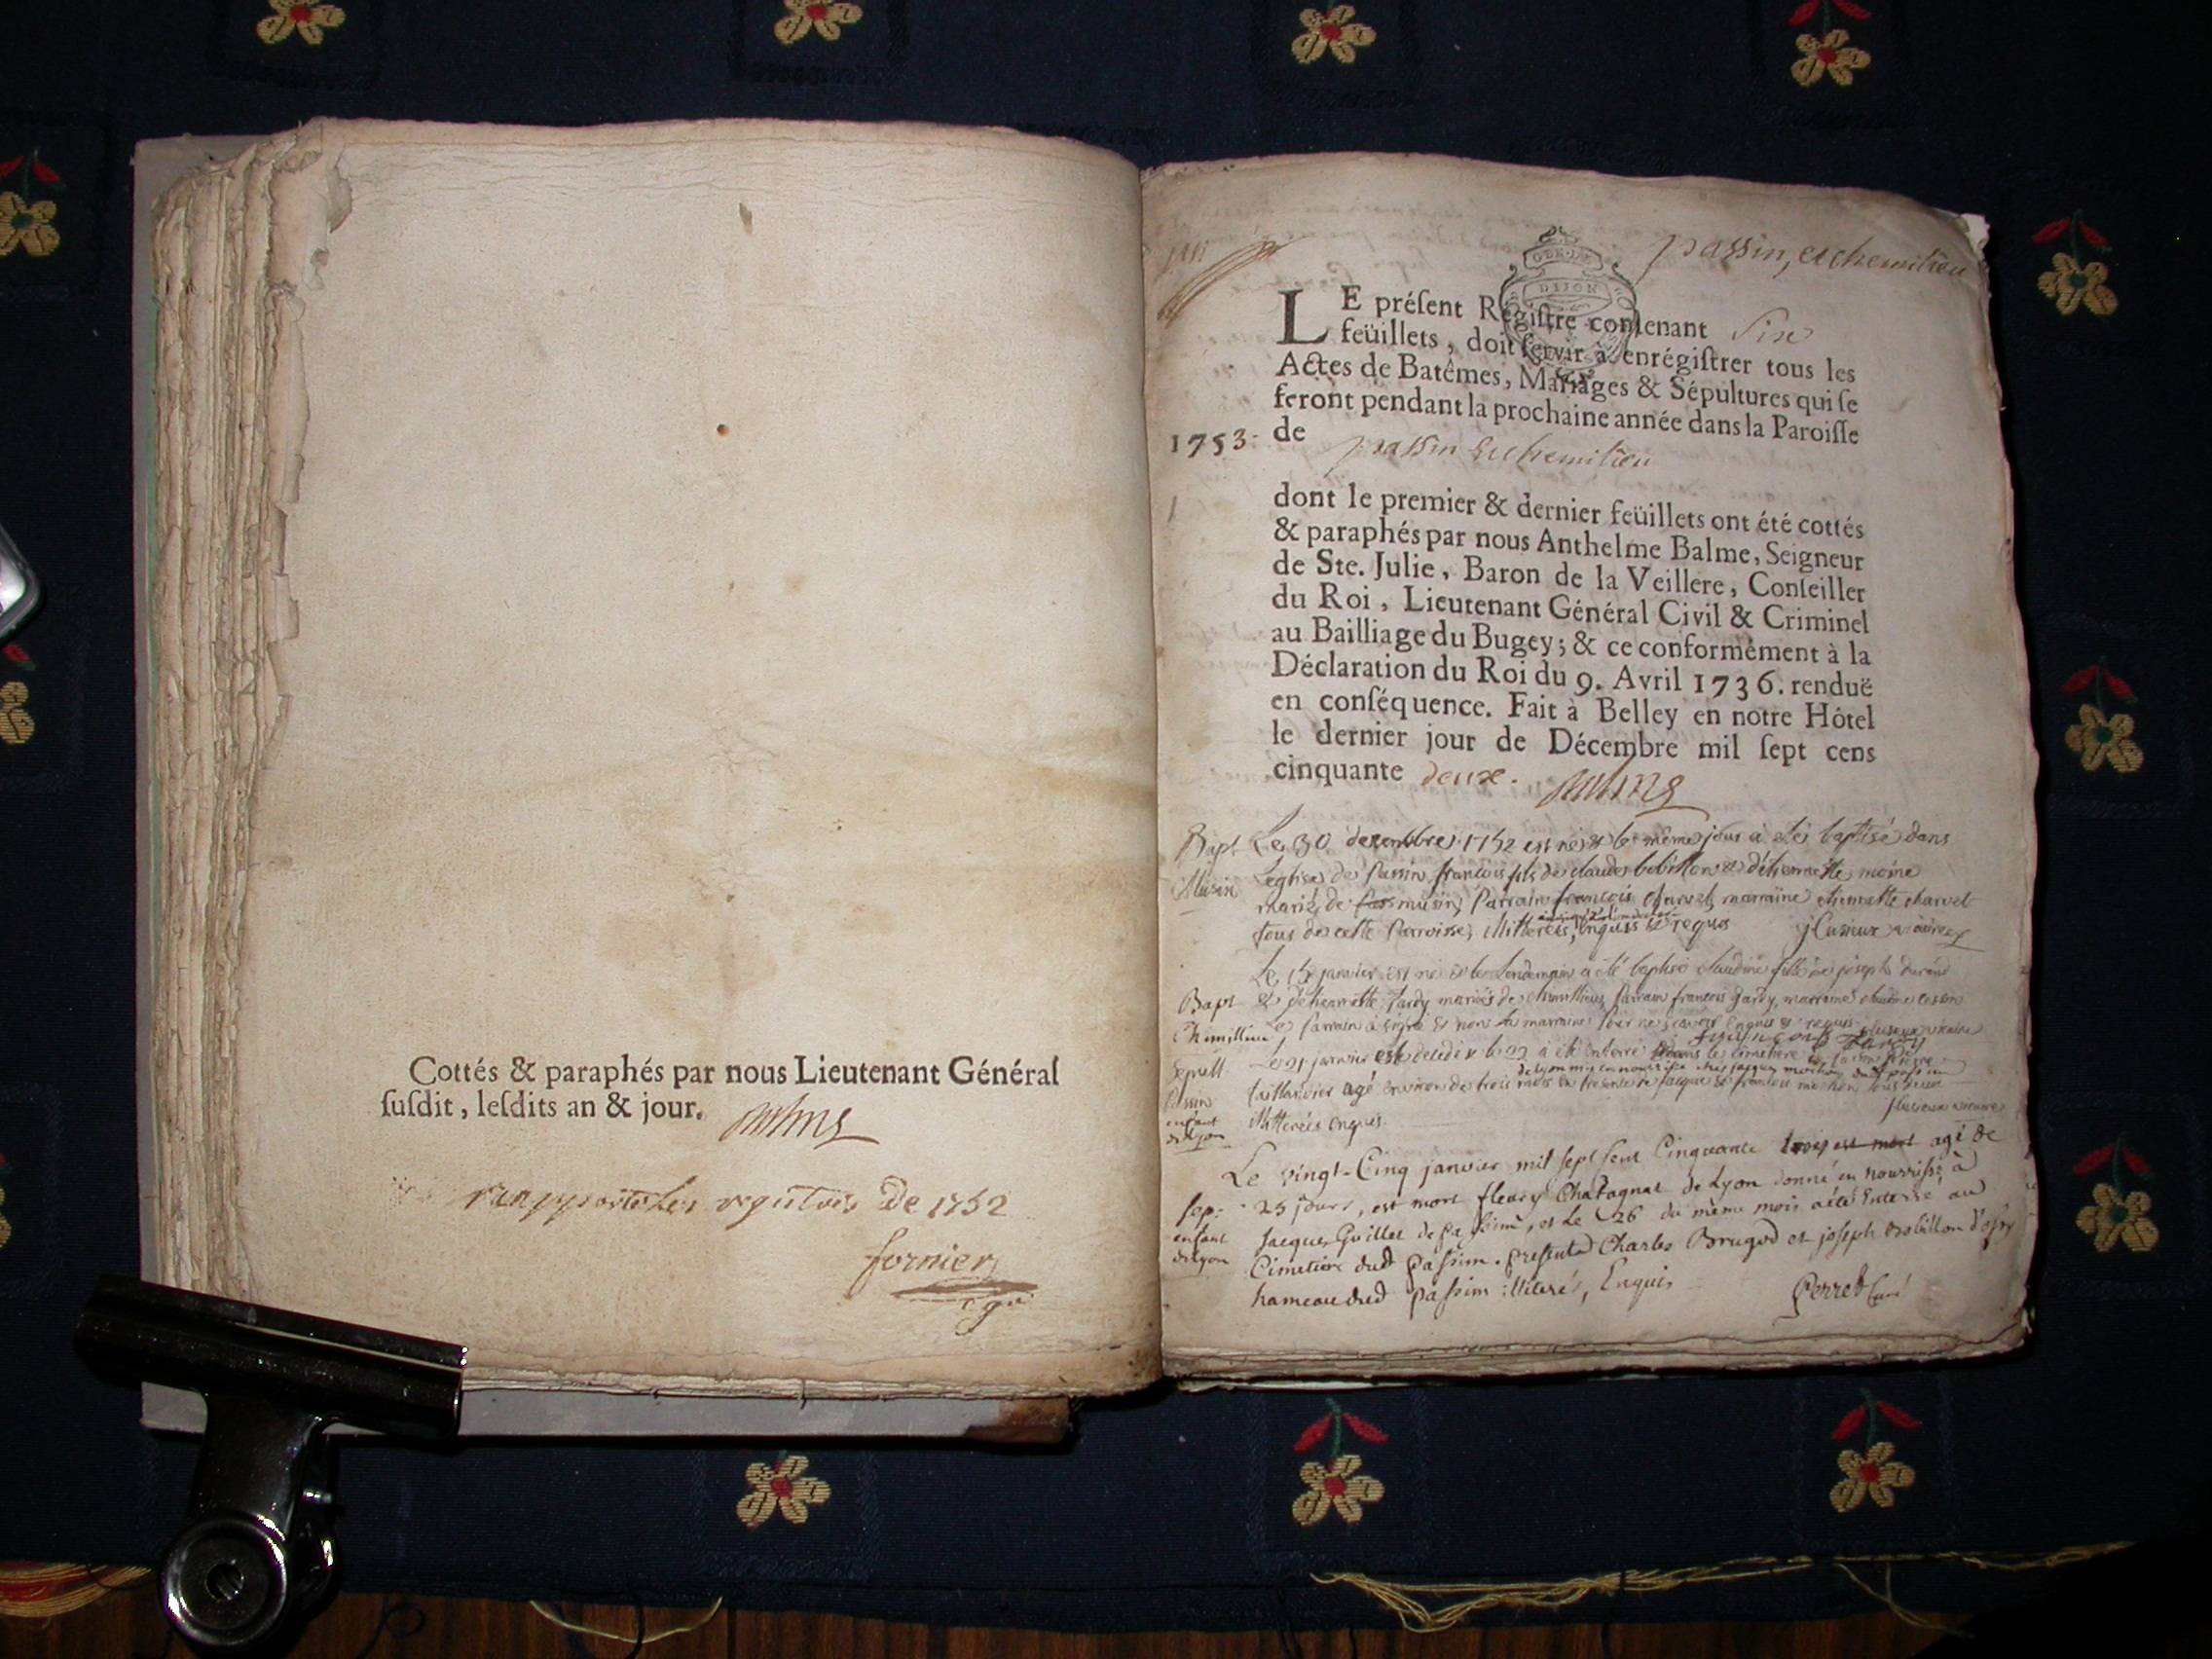 Cottés & paraphés par nous Lieutenant Général
ſuſdit, leſdits an & jour.
de 1752
fornier
passin, et chemilieu
GEN. DE
DIJON
LE préſent Régiſtre contenant Six
feüillets, doit ſervir à enrégiſtrer tous les
Actes de Batêmes, Mariages & Sépultures qui ſe
feront pendant la prochaine année dans la Paroiſſe
1753. de passin et chemilieu
dont le premier & dernier feüillets ont été cottés
& paraphés par nous Anthelme Balme, Seigneur
de Ste. Julie, Baron de la Veillere, Conſeiller
du Roi, Lieutenant Général Civil & Criminel
au Bailliage du Bugey; & ce conformément à la
Déclaration du Roi du 9. Avril 1736. renduë
en conſéquence. Fait à Belley en notre Hôtel
le dernier jour de Décembre mil ſept cens
cinquante deux.
Bapt. Le 30 decembre 1752 est né et le même jour a été baptisé dans
Musin l'eglise de Passin françois fils de claude bobillon et d'etiennette moine
mariés de musin, Parrain françois charvet, marraine etiennette charvet
tous de cette Parroisse, illitterés, enquis et requis
Le janvier est né et le lendemain a été baptisé claudine fille de joseph durand
Bapt. et d'etiennette tardy mariés de chimillieu, parrain francois tardy, marraine claudine
Chimillieu Le parrain a signé et non la marraine pour ne sçavoir enquis et requis
françois Tardy
Sepult. Le 21 janvier est decedé et le 22 a été enterré dans le cimetiere
Passin agé environ de trois mois en presence de jacque et francois tous deux
enfant de Lyon illitterés enquis.
Le vingt-Cinq janvier mil sept sent Cinquante trois est mort agé de
sep: 25 jours, est mort fleury Chatagnat de Lyon donné en nourrisse à
enfant jacque Guillet de passim, et le 26 du même mois a été enterré au
de Lyon Cimetiere dud passim. presents Charles Brugod et joseph Bobillon d'
hameau dud passim illiterés, Enquis
Perret Curé